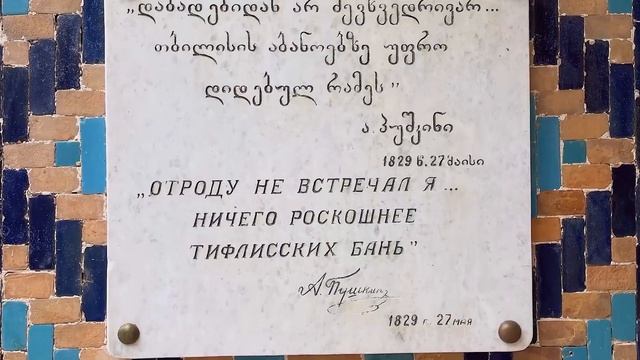 „დაბადებიდან არ შევხვედრივარ...
თბილისის აბანოებზე უფრო
დიდებულ რამეს”
ა. პუშკინი
1829 წ. 27 მაისი
„ОТРОДУ НЕ ВСТРЕЧАЛ Я...
НИЧЕГО РОСКОШНЕЕ
ТИФЛИССКИХ БАНЬ”
А. Пушкин
1829 г. 27 мая